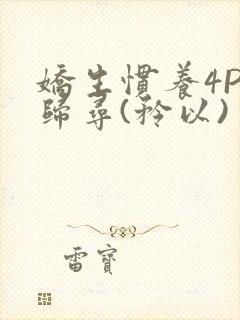 嬌生慣養4P
歸尋(矜以)
雷寶